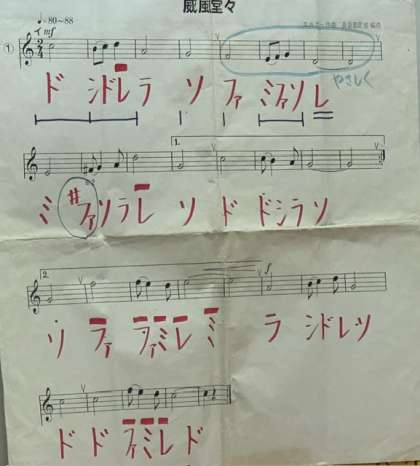 威風堂々
♩=80~88
イ mf
①
ド シドレラ ソ ファ ミファソ レ
やさしく
1.
ミ #ファソラレ ソ ド ドシラソ
2.
f
ソ ファ ファミレ ミ ラ シドレソ
ド ド ファミレ ド